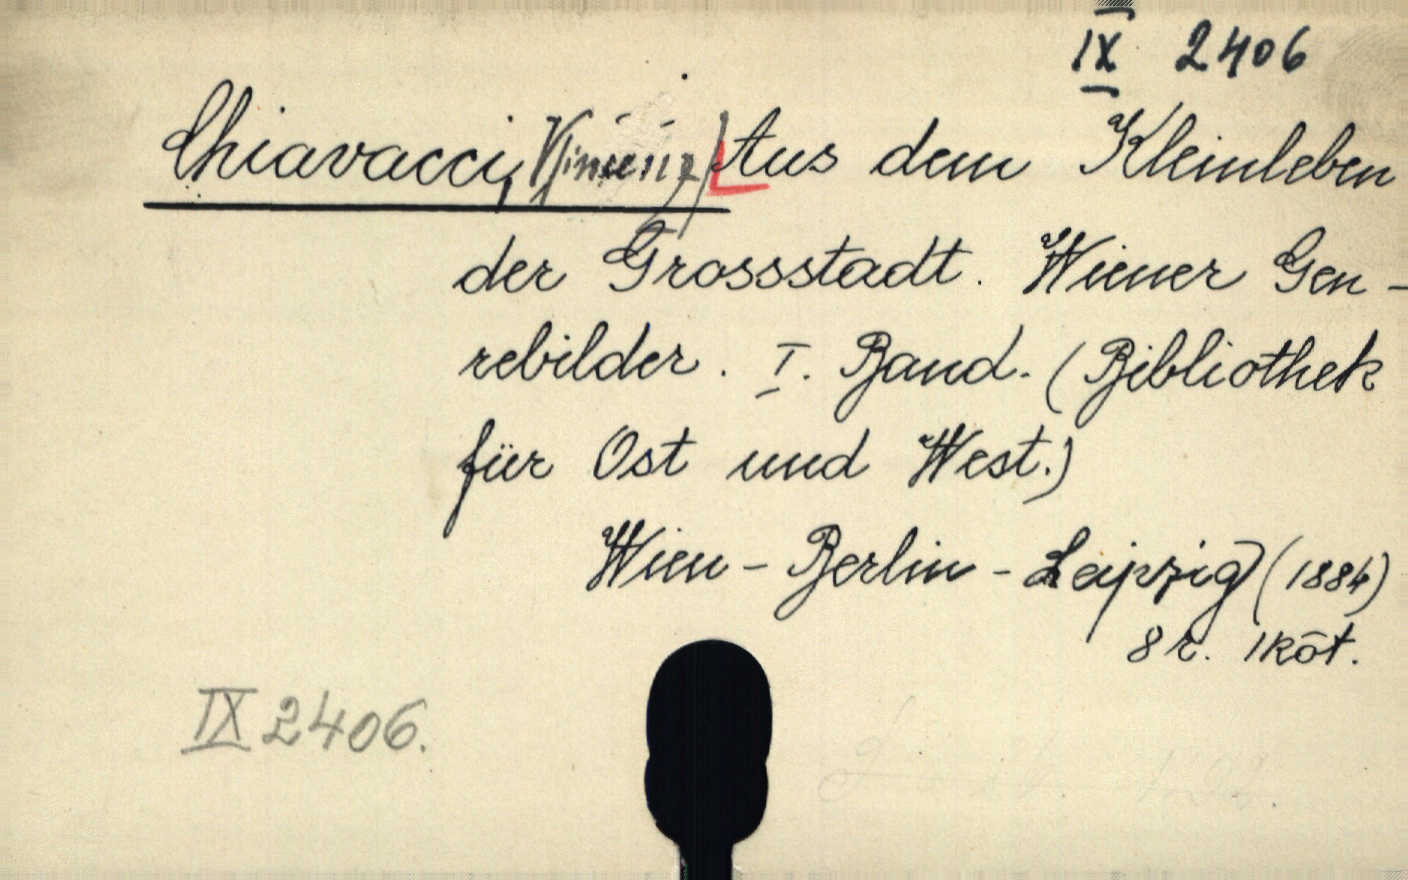 IX 2406
Chiavacci, Aus dem Kleinleben
der Grossstadt. Wiener Gen-
rebilder. I. Band. (Bibliothek
für Ost und West.)
Wien - Berlin - Leipzig (1884)
8 r. 1 köt.
IX 2406.